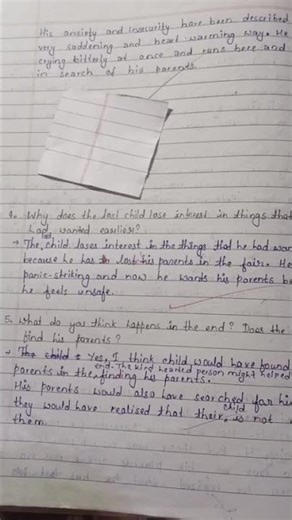 His anxiety and insecurity have been described
very saddening and heart warming way. He
crying bitterly at once and runs here and
in search of his parents.
4. Why does the lost child lose interest in things that
had wanted earlier?
→ The child loses interest in the things that he had wan
because he has lost his parents in the fair. He
panic-striking and now he wants his parents be
he feels unsafe.
5. What do you think happens in the end? Does the
find his parents?
→ The child Yes, I think child would have found
parents in the end. The kind hearted person might helped
finding his parents.
His parents would also have searched for hi
they would have realised that their child is not
them.